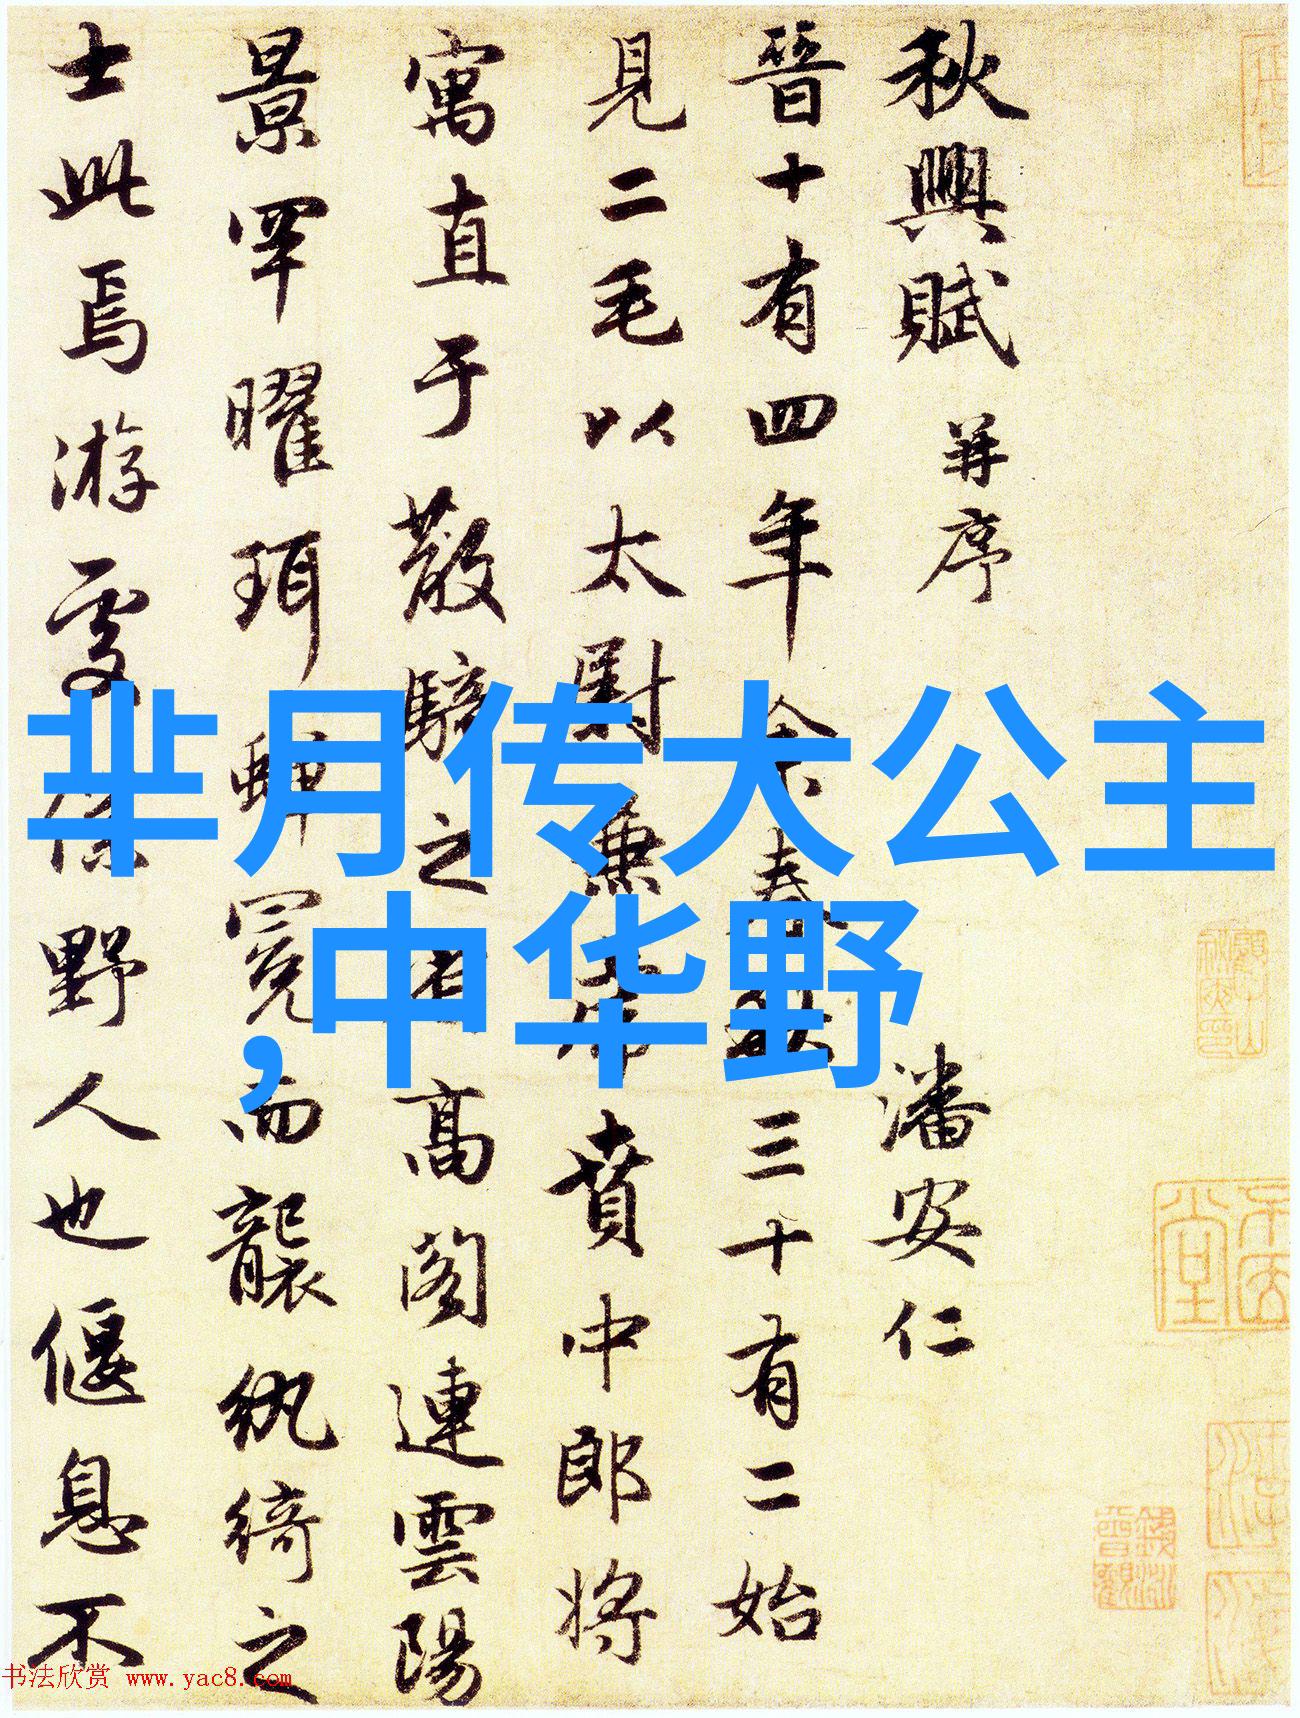 秋興賦 并序 潘安仁
晉十有四年余春秋三十有二始
見二毛以太尉兼虎賁中郎将
寓直于散騎之省高阁連雲陽
景罕曜珥蟬冕而襲紈綺之
士此焉游處僕野人也偃息不
芈月传大公主
,中华野
书法欣赏 www.yac8.com